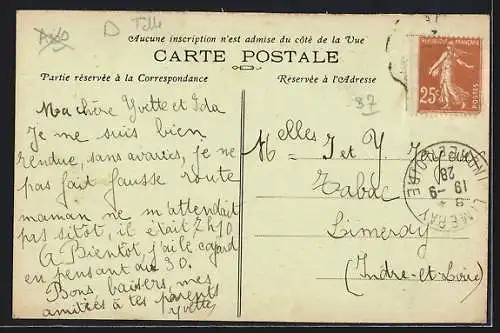 Aucune inscription n'est admise du côté de la Vue
CARTE POSTALE
Partie réservée à la Correspondance
Réservée à l'Adresse
Ma chère Yvette et Ida
Je me suis bien
rendue, sans avaries, je ne
pas fait fausse route
maman ne m'attendait
pas sitôt, il était 2h10
A Bientôt, j'ai le cafard
en pensant au 30.
Bons baisers, mes
amitiés à tes parents
Yvette
87
REPUBLIQUE FRANÇAISE
25c
POSTES
Melles I et Y.
Tabac
Limeray
(Indre-et-Loire)
LIMERAY
INDRE ET LOIRE
19 - 9
28